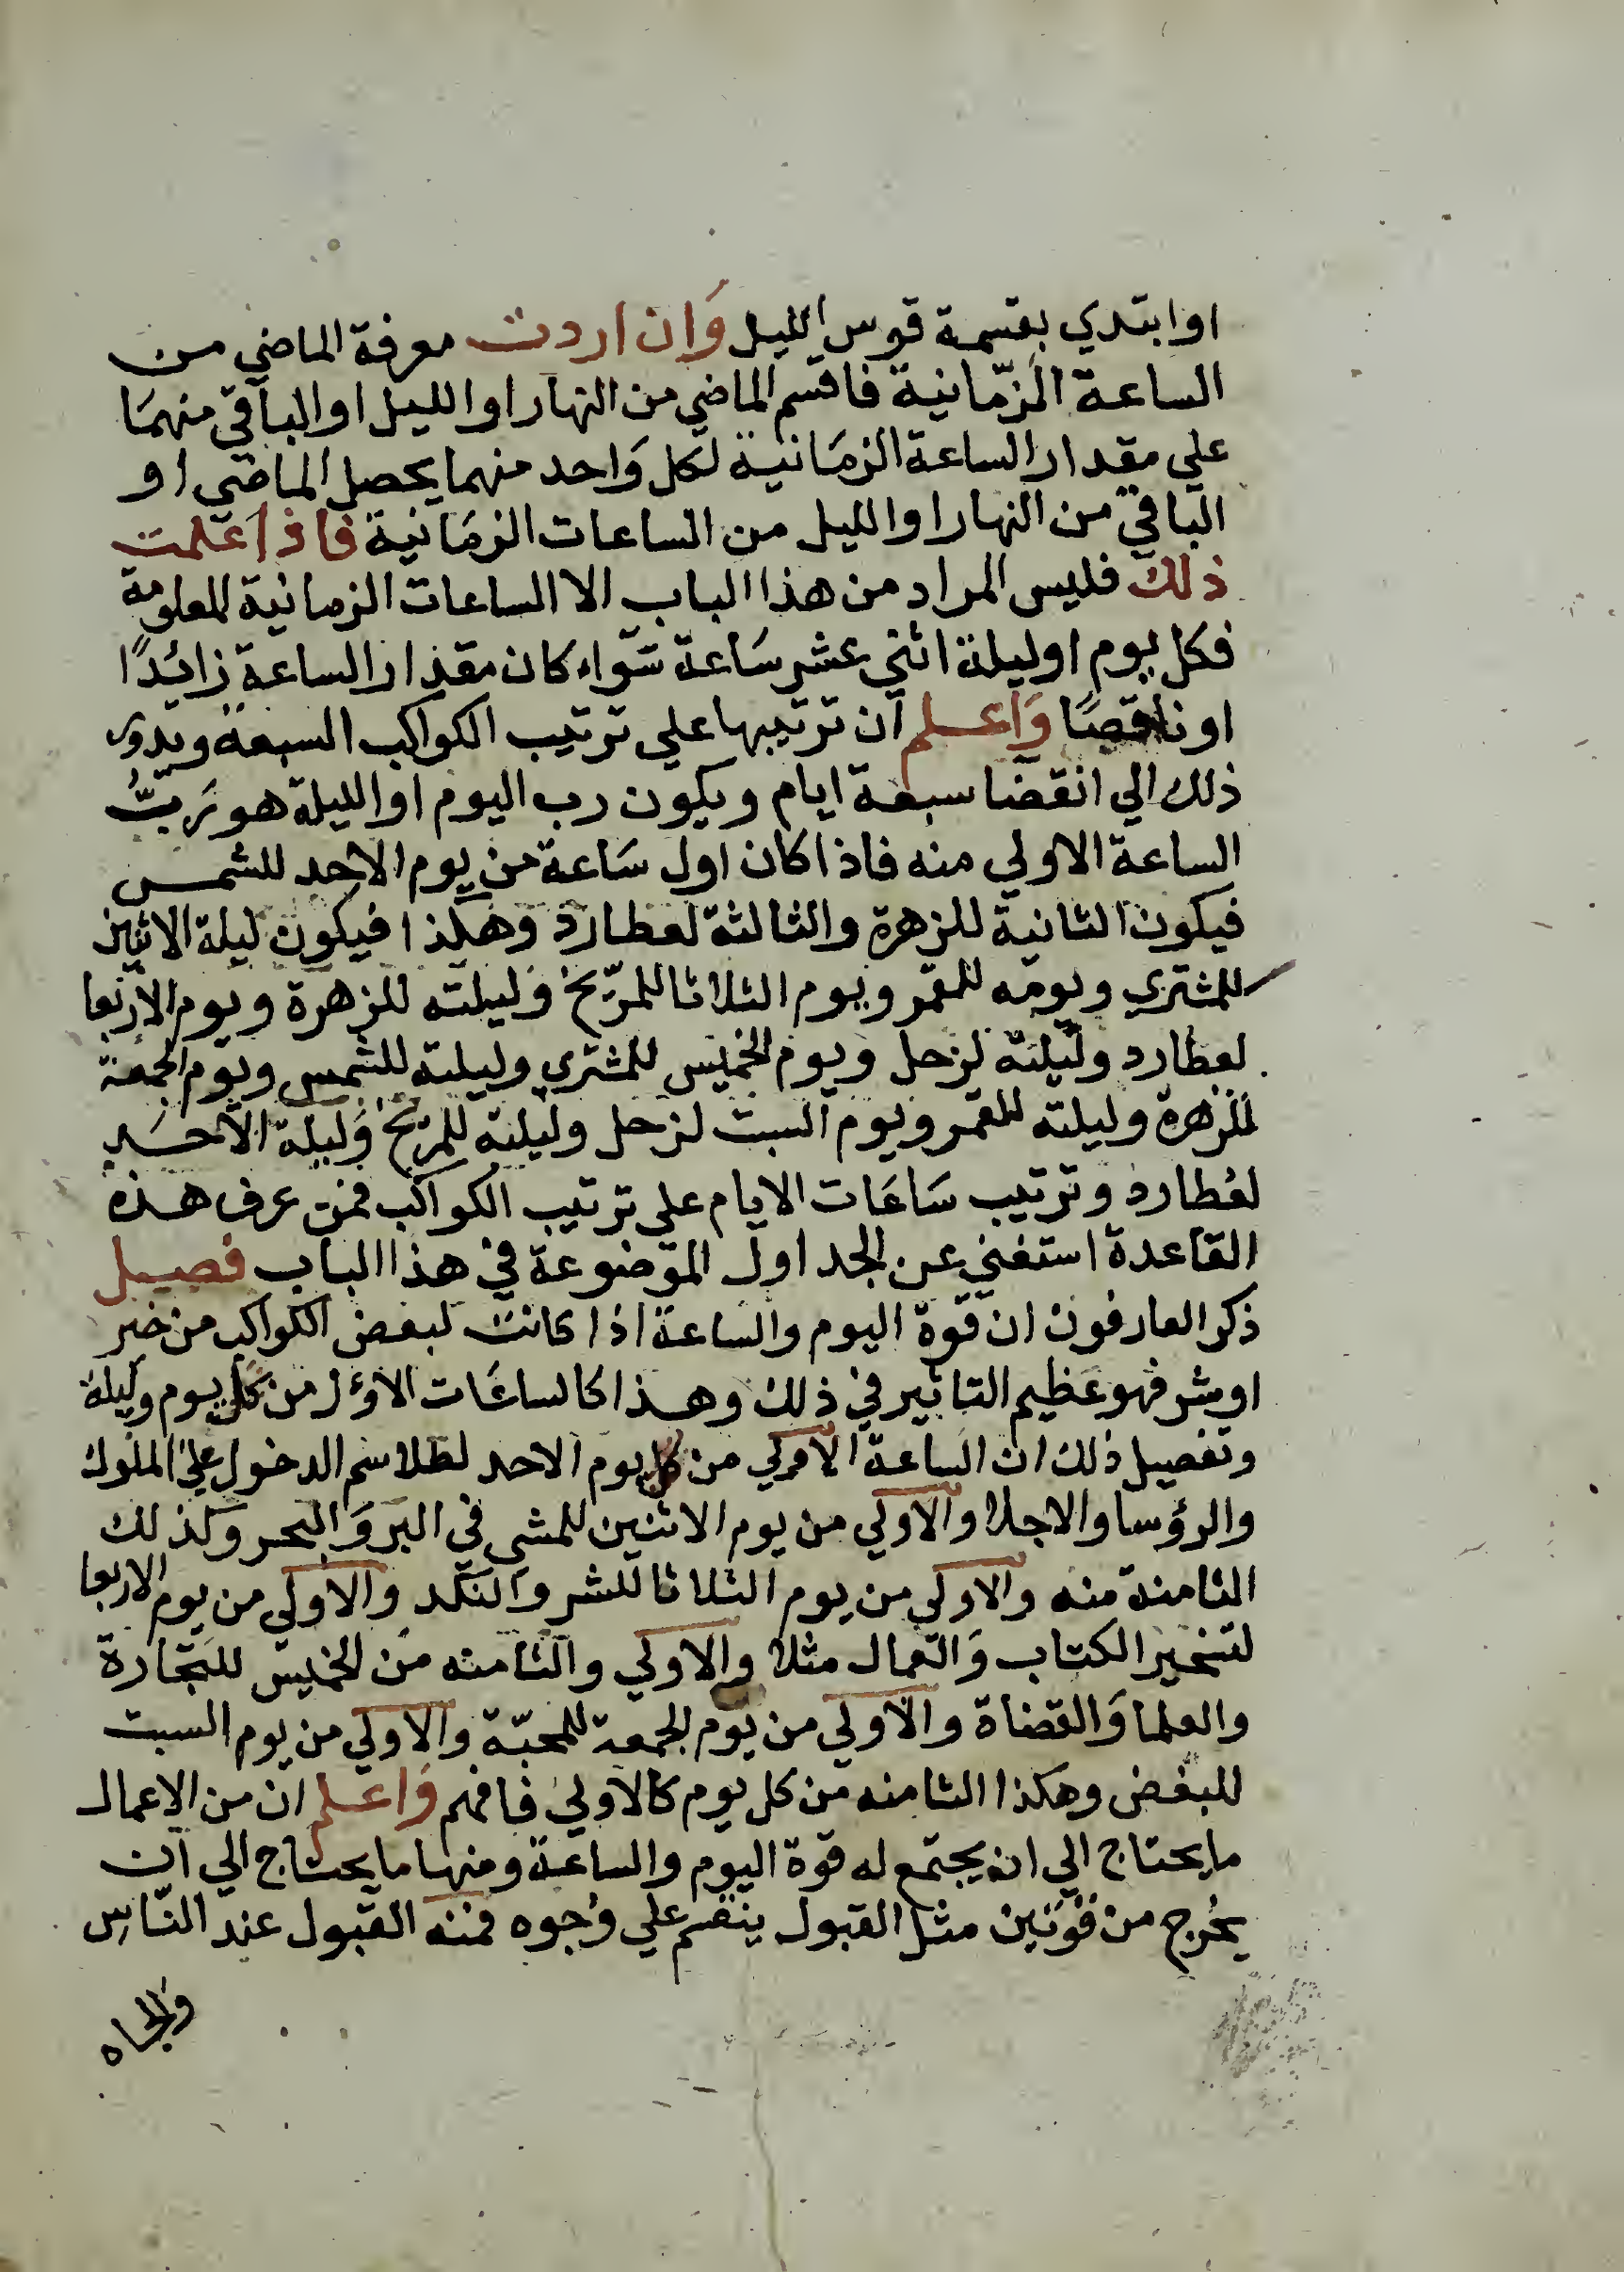 او ابتدي بقسمة قوس الليل وَان اردت معرفة الماضي من
الساعة الزّمانية فاقسم الماضي من النهار او الليل او الباقي منهمَا
علي مقدار الساعة الزمَانية لكل وَاحد منهما يحصل الماضي او
الباقي من النهار او الليل من الساعات الزمَانية فاذا علمت
ذلك فليس المراد من هذا الباب الا الساعات الزمانية المعلومة
فكل يوم او ليلة اثني عشر سَاعة سَواء كان مقدار الساعة زائدًا
او ناقصًا وَاعلم ان ترتيبها علي ترتيب الكواكب السبعة ويدور
ذلك الي انقضا سبعة ايام ويكون رب اليوم او الليلة هو رَبُّ
الساعة الاولي منه فاذا كان اول سَاعة من يوم الاحد للشمس
فيكون الثانية للزهرة والثالثة لعطارد وهكذا فيكون ليلة الاثنين
للمشتري ويومه للقمر ويوم الثلاثا للمرّيخ وَليلته للزهرة ويوم الاربعا
لعطارد وليلته لزحل ويوم الخميس للمشتري وليلته للشمس ويوم الجمعة
للزهرة وليلته للقمر ويوم السبت لزحل وليلته للمريخ وَليلة الاحَد
لعُطارد وترتيب سَاعَات الايام علي ترتيب الكواكب فمن عرف هذه
القاعدة استغني عن الجداول الموضوعة في هذا الباب فصل
ذكر العارفون ان قوة اليوم والساعة اذا كانت لبعض الكواكب من خير
او شر فهو عظيم التاثير في ذلك وهذا كالساعَات الاوُل من كل يوم وليلة
وتفصيل ذلك ان الساعة الاولي من يوم الاحد لطلاسم الدخول علي الملوك
والرؤسا والاجلا والاولي من يوم الاثنين للمشي في البر وَالبحر وكذلك
الثامنة منه والاولي من يوم الثلاثا للشر والنكد والاولي من يوم الاربعا
لتسخير الكتاب وَالعمال مثلا والاولي والثامنه من الخميس للتجارة
والعلما وَالقضاة والاولي من يوم الجمعة للمحبّة والاولي من يوم السبت
للبغض وهكذا الثامنه من كل يوم كالاولي فافهم وَاعلم ان من الاعمال
ما يحتاج الي ان يجتمع له قوة اليوم والساعة ومنها ما يحتاج الي ان
يخرج من قوتين مثل القبول ينقسم علي وُجوه فمنه القبول عند النّاسِ
وَالجاه